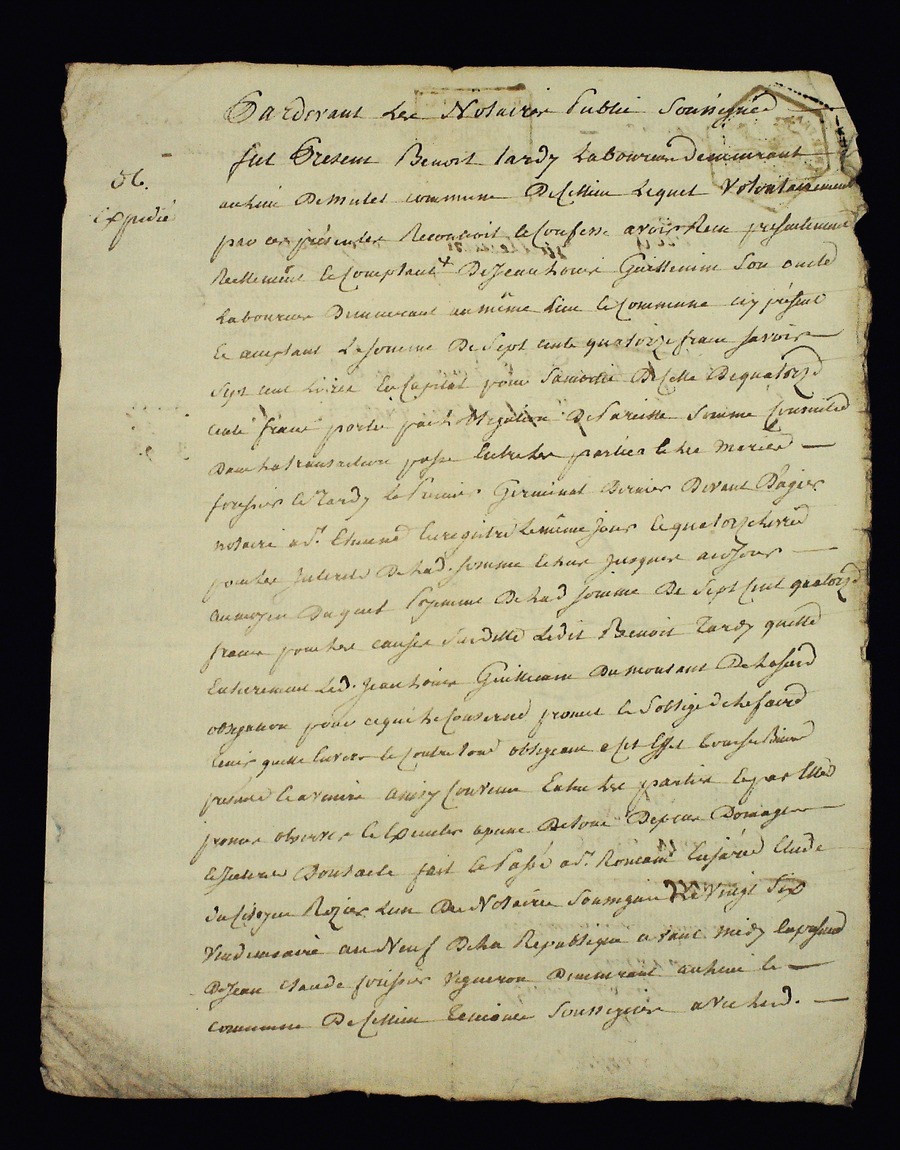 Pardevant Les Notaires Public Soussignés
fut Present Benoit tardy Laboureur demeurant
56.
au lieu De mulet commune De Cellieu Lequel Volontairement
Expedié
par ces présentes Reconnoit & Confesse avoir Reçu présentement
Reellement & Comptant + De Jean Louis Guillemin Son oncle
Laboureur Demeurant au même Lieu & Commune icy présent
& acceptant La Somme De Sept cents quatorze francs savoir
Sept cent Livres En Capital pour La moitié De Celle De quatorze
cents francs portée par L'obligation De Pareille Somme
Dans La transaction passé Entre les parties & les mariés
foissier & Tardy Le Premier Germinal Dernier Devant Dagier
notaire a St. Etienne Enregistré Le même jour & quatorze Livres
pour les Interets De Lad. Somme Echus jusques a ce jour
au moyen Duquel Payement De Lad Somme De Sept Cent quatorze
francs pour les causes Susdittes Ledit Benoit Tardy quitte
Entierement Led. Jean Louis Guillemin Du montant De La susd
obligation pour ce qui Le Concerne promet & S'oblige De Le faire
tenir quitte Envers & Contre tous obligeant a Cet Effet tous ses Biens
présents & avenirs ainsy Convenu Entre Les parties & par Elles
promis observer & Executer a peine De tous Depens Domages
& Interets Dont acte fait & Passé a St. Romain En Jarêt Etude
du Citoyen Rozier L'un Des Notaires Soussignés Le Vingt Six
Vendemiaire an Neuf De La Republique avant midy En présence
De Jean Claude foissier Vigneron Demeurant au Lieu &
commune De Cellieu Temoins Soussignés avec Led.